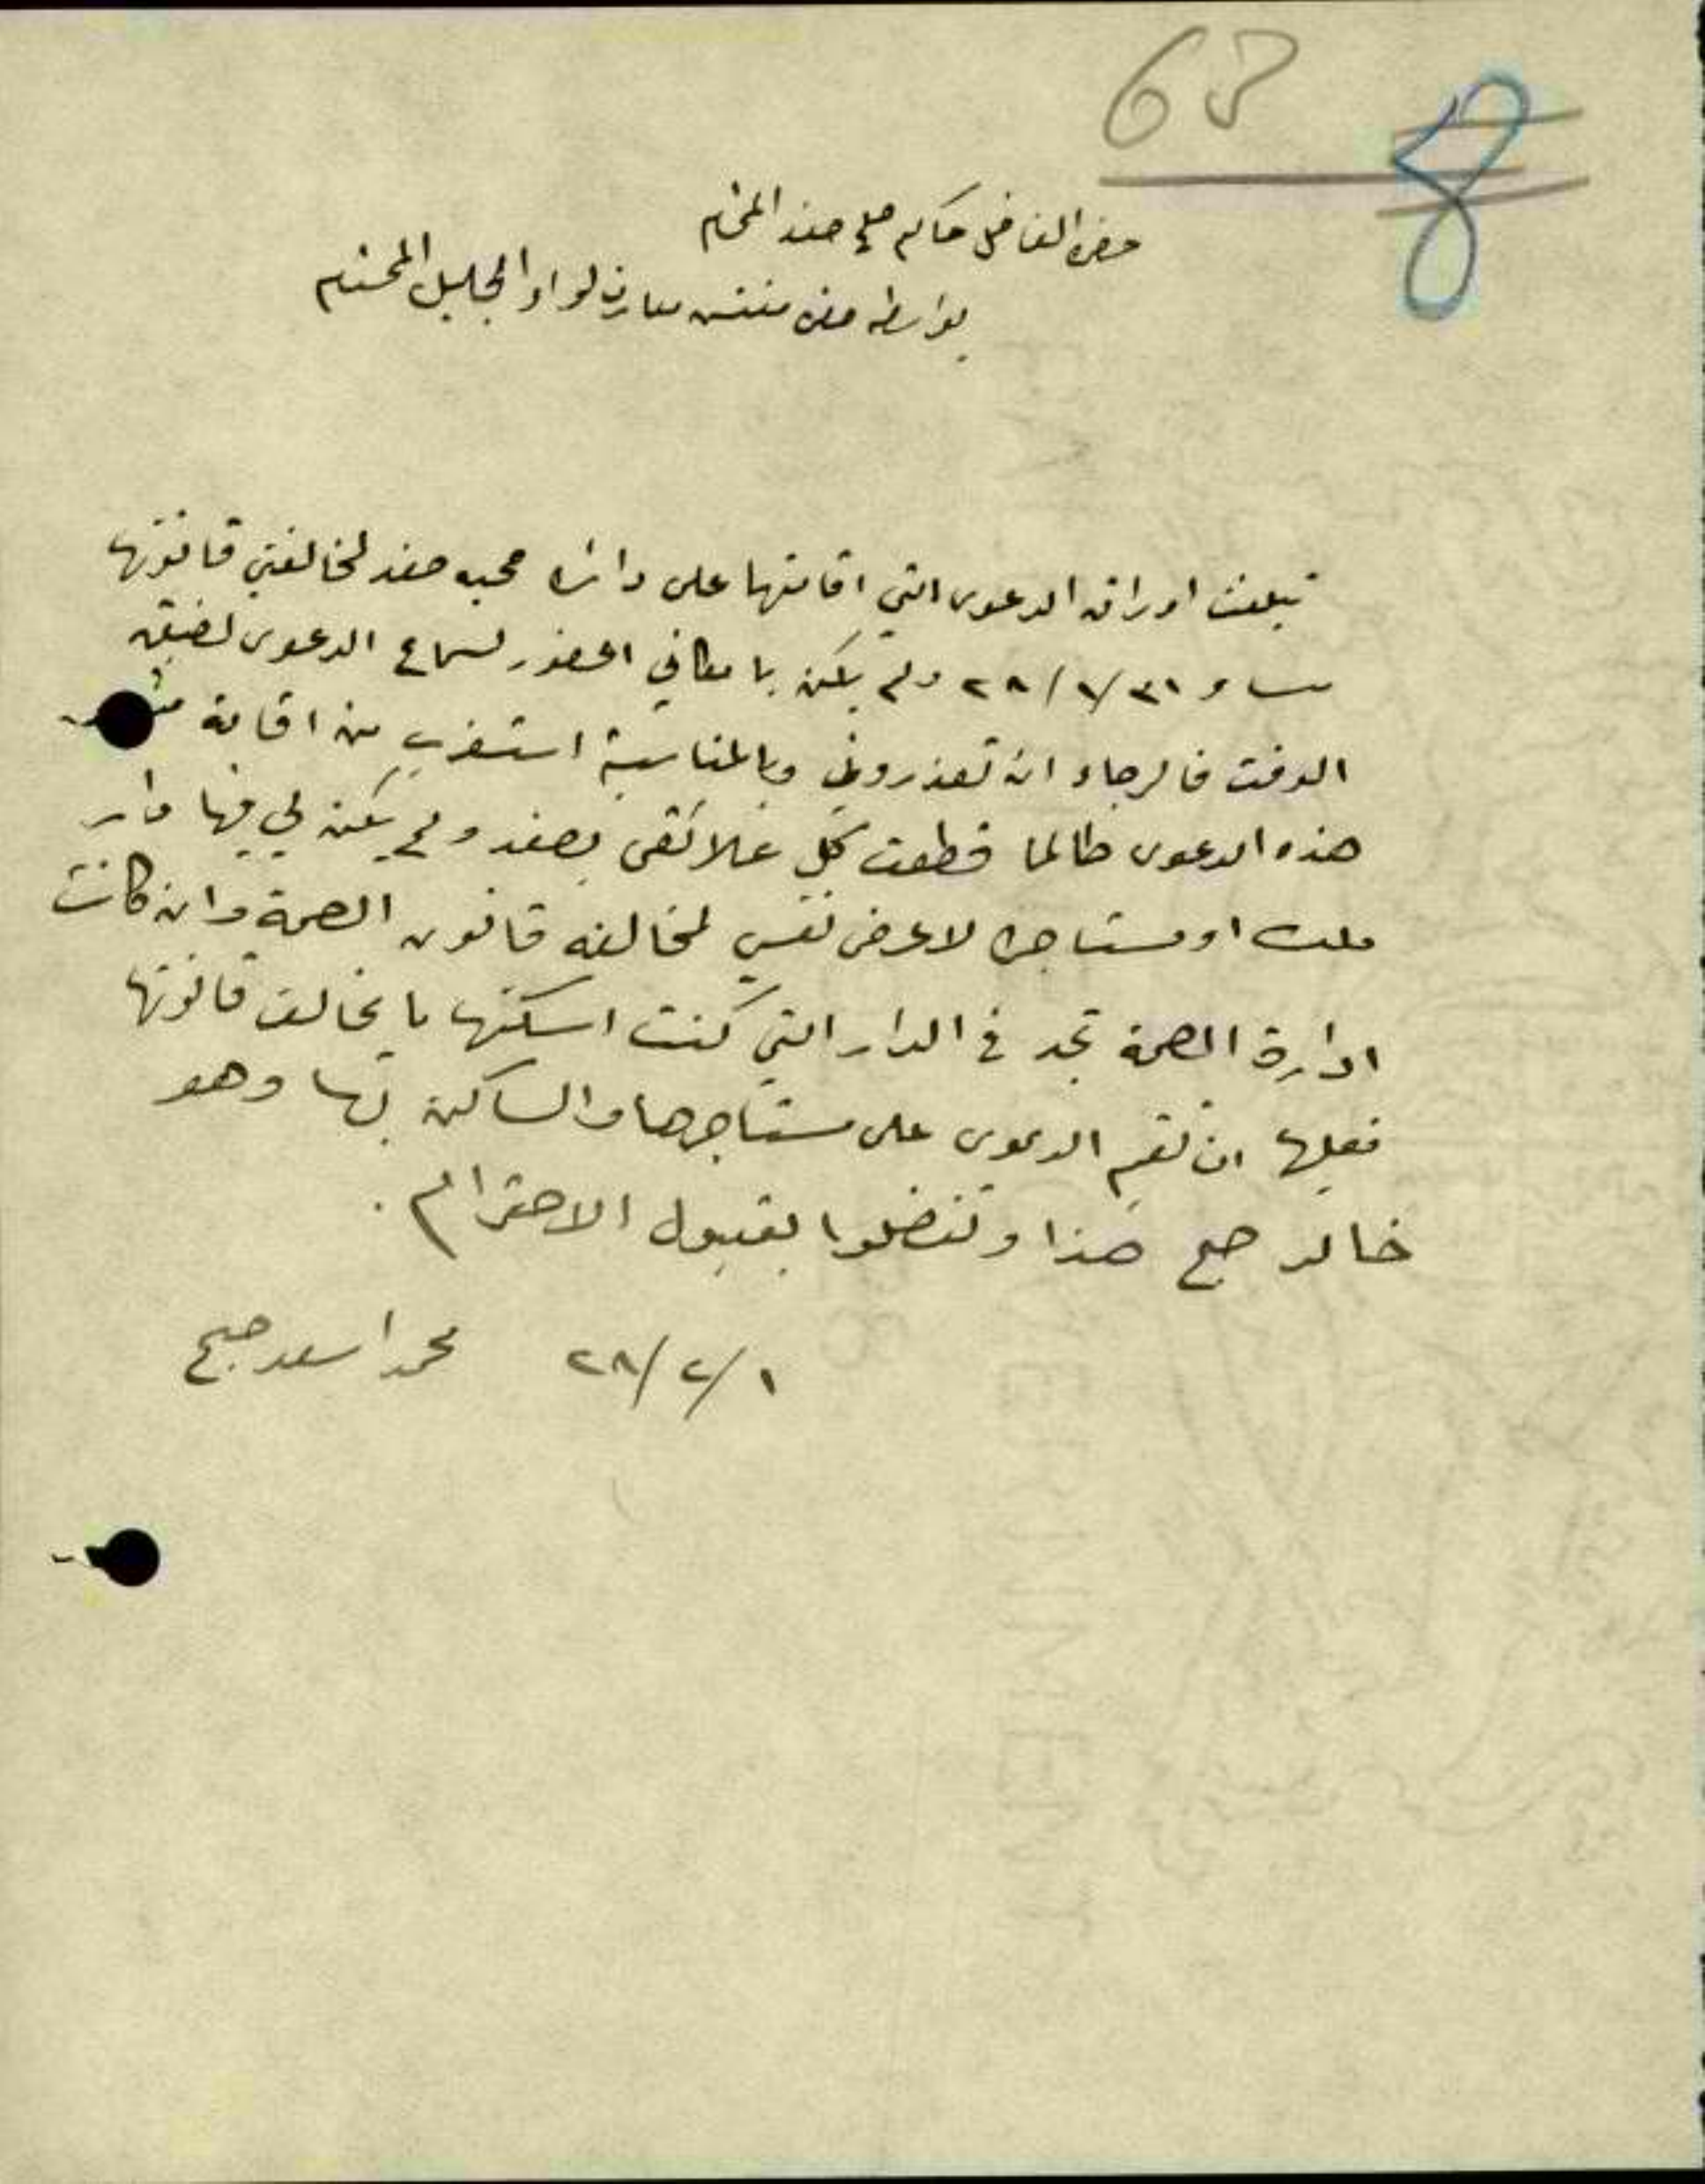 68
8
حضرة الفاضل حاكم صلح صفد المحترم
بواسطة حضرة مفتش معارف لواء الجليل المحترم
تبلغت اوراق الدعوى التي اقامتها على دائرة صحية صفد لمخالفتي قانونها
مساء ٣١/١/٢٨ ولم يكن بامكاني الحضور لسماع الدعوى لضيق
الوقت فالرجاء ان تعذروني وبالمناسبة استغرب من اقامة مثل
هذه الدعوى طالما قطعت كل علائقي بصفد ولم يكن لي فيها دار
ملك او مستاجرة لاعرض نفسي لمخالفة قانون الصحة وان كانت
ادارة الصحة تجد في الدار التي كنت اسكنها ما يخالف قانونها
فعليها ان تقيم الدعوى على مستاجرها والساكن بها وهو
خالد صبح هذا وتفضلوا بقبول الاحترام .
١/٢/٢٨ محمد اسعد صبح